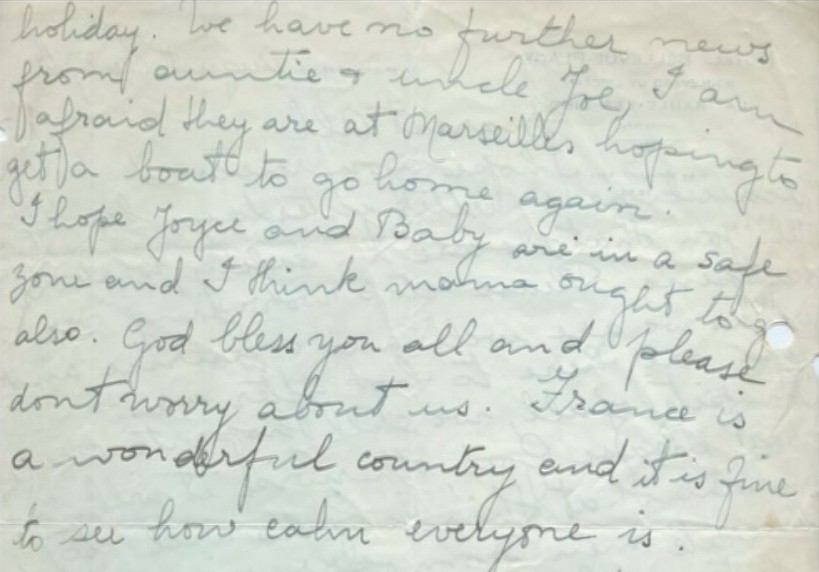 holiday. We have no further news
from auntie & uncle Joe, I am
afraid they are at Marseilles hoping to
get a boat to go home again.
I hope Joyce and Baby are in a safe
zone and I think mama ought to go
also. God bless you all and please
dont worry about us. France is
a wonderful country and it is fine
to see how calm everyone is.